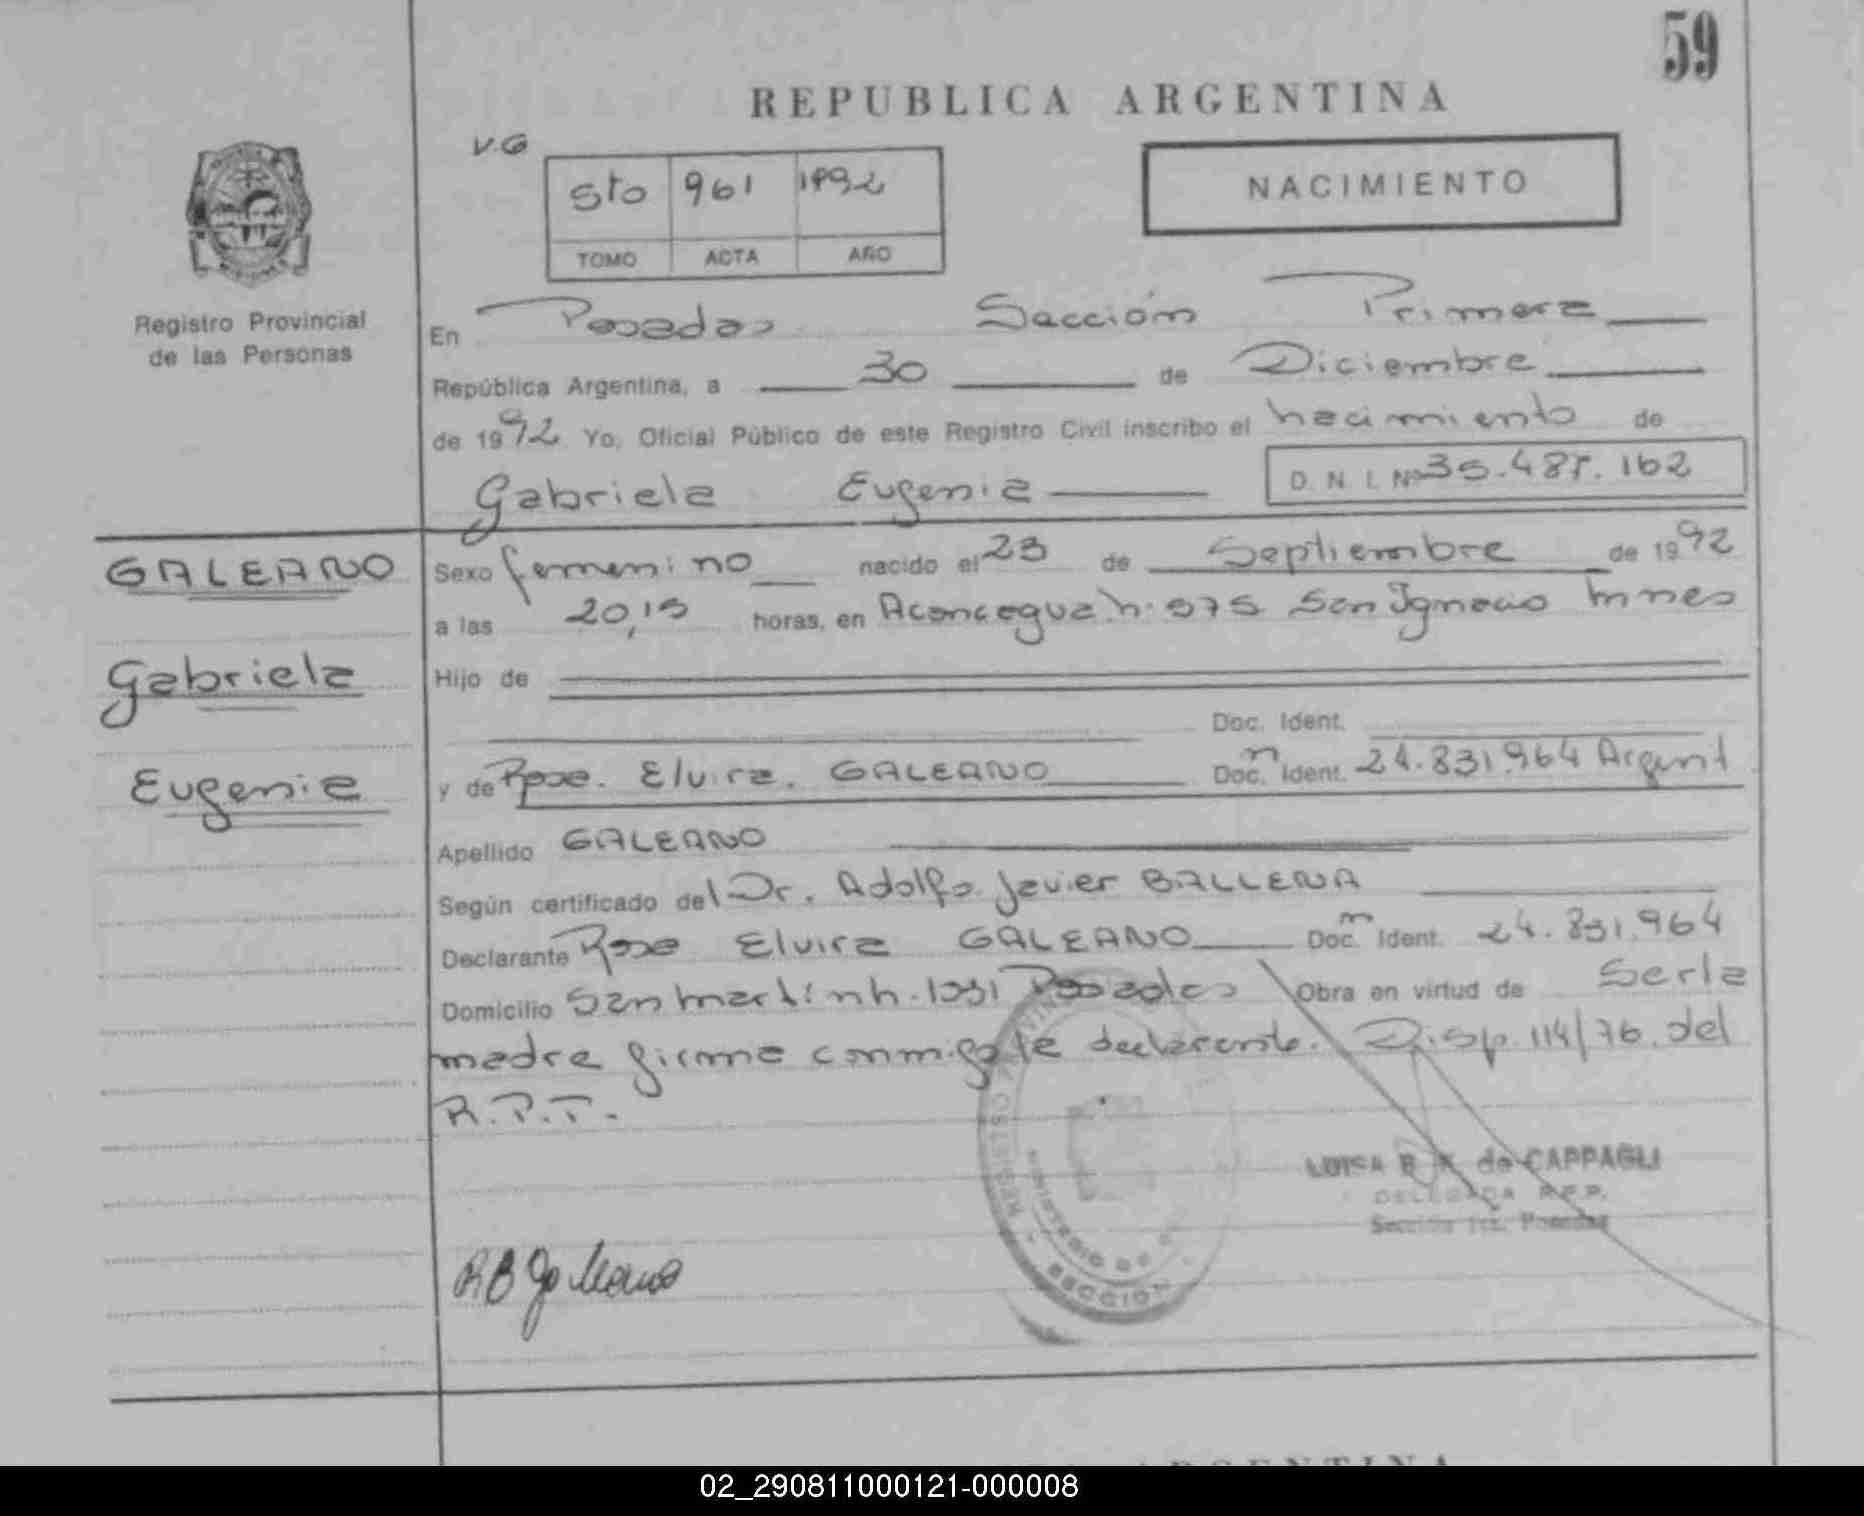 59
REPUBLICA ARGENTINA
V.G
5to 961 1992
TOMO ACTA AÑO
NACIMIENTO
Registro Provincial
de las Personas
En Posadas Sección Primera
República Argentina, a 30 de Diciembre
de 1992 Yo, Oficial Público de este Registro Civil inscribo el nacimiento de
Gabriela Eugenia D. N. I. Nº 35.487.162
GALEANO
Gabriela
Eugenia
Sexo femenino nacido el 23 de Septiembre de 1992
a las 20,15 horas, en Aconcagua n: 575 San Ignacio Mnes
Hijo de
Doc. Ident.
y de Rosa Elvira GALEANO Doc. Ident. 24.831.964 Argent
Apellido GALEANO
Según certificado del Dr. Adolfo Javier BALLENA
Declarante Rosa Elvira GALEANO Doc. Ident. 24.831.964
Domicilio San Martín n. 1031 Posadas Obra en virtud de Ser la
madre firma conmigo la declarante. Disp. 114/76 del
R.P.P.
LUISA B de CAPPAGLI
DELEGADA R.P.P.
Sección 1ra. Posadas
SECCION
ARGENTINA
02_290811000121-000008